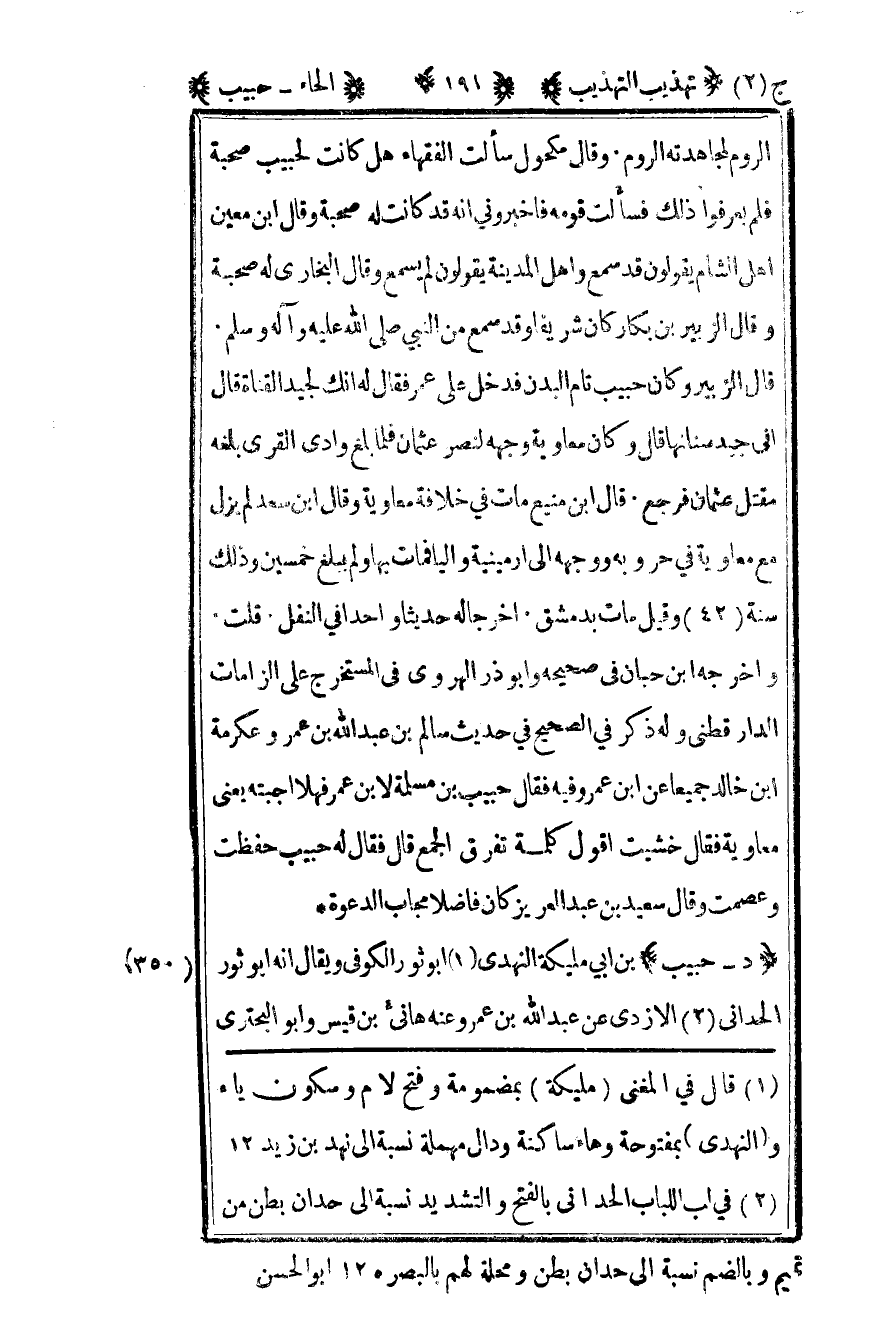 ج (٢) ﴿ تهذيب التهذيب ﴾ ﴿ ١٩١ ﴾ ﴿ الحاء ـ حبيب ﴾
الروم لمجاهدته الروم ٠ وقال مكحول سألت الفقهاء هل كانت لحبيب صحبة
فلم يعرفوا ذلك فسألت قومه فاخبروني انه قد كانت له صحبة وقال ابن معين
اهل الشام يقولون قد سمع واهل المدينة يقولون لم يسمع وقال البخارى له صحبة
وقال الزبير بن بكار كان شريفا وقد سمع من النبي صلى الله عليه وآله وسلم ٠
قال الزبير وكان حبيب تام البدن فدخل على عمر فقال له انك لجيد القناة قال
انى جيد سنانها قال وكان معاوية وجهه لنصر عثمان فلما بلغ وادى القرى بلغه
مقتل عثمان فرجع ٠ قال ابن منيع مات في خلافة معاوية وقال ابن سعد لم يزل
مع معاوية في حروبه ووجهه الى ارمينية واليا فمات بها ولم يبلغ خمسين وذلك
سنة (٤٢) وقيل مات بدمشق ٠ اخرجا له حديثا واحدا في النفل ٠ قلت ٠
واخرجه ابن حبان فى صحيحه وابو ذر الهروى فى المستخرج على الزامات
الدار قطنى وله ذكر في الصحيح في حديث سالم بن عبدالله بن عمر وعكرمة
ابن خالد جميعا عن ابن عمر وفيه فقال حبيب بن مسلمة لابن عمر فهلا اجبته يعنى
معاوية فقال خشيت اقول كلمة تفرق الجمع قال فقال له حبيب حفظت
وعصمت وقال سعيد بن عبدالعزيز كان فاضلا مجاب الدعوة *
﴿ د ـ حبيب ﴾ بن ابي مليكة النهدى (١) ابو ثور الكوفى ويقال انه ابو ثور (٣٥٠)
الحدانى (٢) الازدى عن عبدالله بن عمر وعنه هانئ بن قيس وابو البخترى
(١) قال في المغنى (مليكة) بمضمومة وفتح لام وسكون ياء
و(النهدى) بمفتوحة وهاء ساكنة ودال مهملة نسبة الى نهد بن زيد ١٢
(٢) في لب اللباب الحدانى بالفتح والتشديد نسبة الى حدان بطن من
تميم وبالضم نسبة الى حدان بطن ومحلة لهم بالبصره ١٢ ابوالحسن